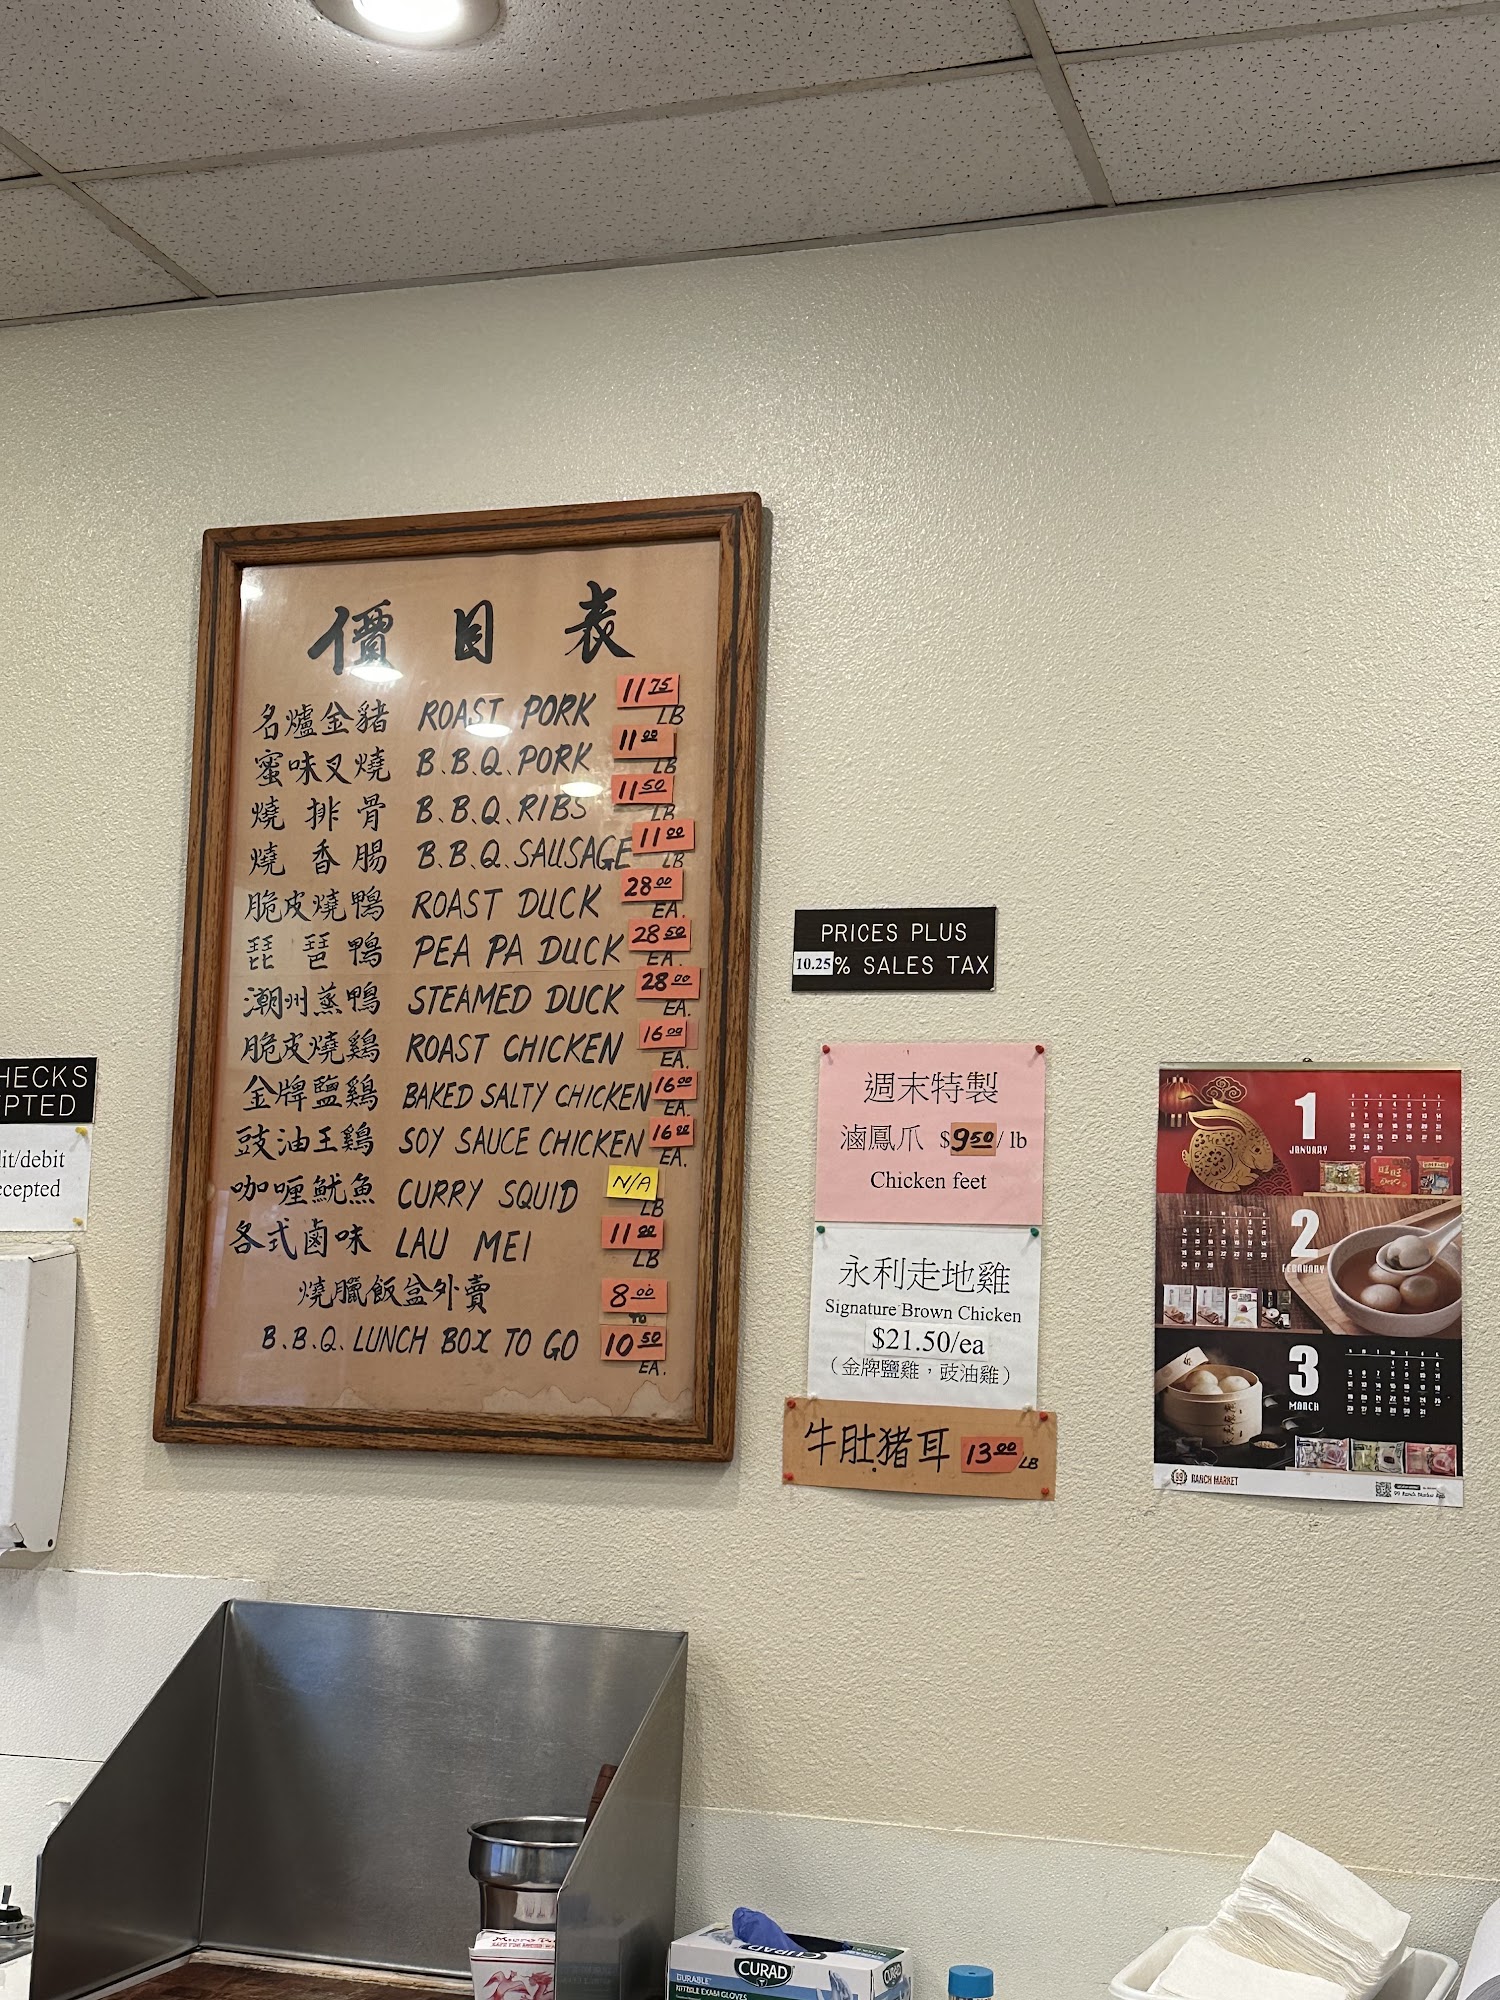 價目表
名爐金豬 ROAST PORK 11 75 LB
蜜味叉燒 B.B.Q. PORK 11 00 LB
燒排骨 B.B.Q. RIBS 11 50 LB
燒香腸 B.B.Q. SAUSAGE 11 00 LB
脆皮燒鴨 ROAST DUCK 28 00 EA.
琵琶鴨 PEA PA DUCK 28 50 EA.
潮州蒸鴨 STEAMED DUCK 28 00 EA.
脆皮燒鷄 ROAST CHICKEN 16 00 EA.
金牌鹽鷄 BAKED SALTY CHICKEN 16 00 EA.
豉油王鷄 SOY SAUCE CHICKEN 16 00 EA.
咖喱魷魚 CURRY SQUID N/A LB
各式鹵味 LAU MEI 11 00 LB
燒臘飯盒外賣 8 00
TO
B.B.Q. LUNCH BOX TO GO 10 50 EA.
HECKS
PTED
it/debit
cepted
PRICES PLUS
10.25% SALES TAX
週末特製
滷鳳爪 $9 50/ lb
Chicken feet
永利走地雞
Signature Brown Chicken
$21.50/ea
（金牌鹽雞，豉油雞）
牛肚猪耳 13 00 LB
1
JANUARY
2
FEBRUARY
3
MARCH
99 RANCH MARKET
CURAD
DURABLE
NITRILE EXAM GLOVES
CURAD